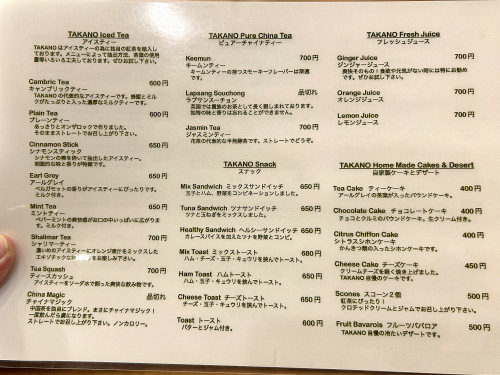 TAKANO Iced Tea
アイスティー
TAKANO はアイスティーの為に独自の紅茶を輸入し
ております。メニューによって抽出方法、茶葉の使用
量等いろいろ工夫しております。ぜひお試し下さい。
Cambric Tea 600円
キャンブリックティー
TAKANO の代表的なアイスティーです。蜂蜜とミル
クがたっぷりと入った濃厚なミルクティーです。
Plain Tea 600円
プレーンティー
あっさりとオンザロックで作りました。
そのままストレートでお召し上がり下さい。
Cinnamon Stick 650円
シナモンスティック
シナモンの棒を砕いて抽出したアイスティー。
刺激的な味と香りが特徴です。
Earl Grey 650円
アールグレイ
ベルガモットの香りがアイスティーにぴったりです。
ミルク付き。
Mint Tea 650円
ミントティー
ペパーミントの爽快感がお口の中いっぱいに広がりま
す。ミルク付き。
Shalimar Tea 700円
シャリマーティー
濃いめのアイスティーにオレンジ果汁をミックスした
エキゾチックなお茶です。お楽しみ下さい。
Tea Squash 700円
ティースカッシュ
アイスティーをソーダで割った爽快な飲み物です。
China Magic 品切れ
チャイナマジック
中国茶を独自にブレンド。まさにチャイナマジック！
一度飲んだら虜になります。
ストレートでお召し上がり下さい。ノンカロリー。
TAKANO Pure China Tea
ピュアーチャイナティー
Keemun 700円
キームンティー
キームンティーの持つスモーキーフレーバーは深遠
です。
Lapsang Souchong 品切れ
ラプサンスーチョン
英国では貴族のお茶として長く親しまれております。
独特の味と香りは忘れることができません。
Jasmin Tea 700円
ジャスミンティー
花茶の代表的な半発酵茶です。ストレートでどうぞ。
TAKANO Snack
スナック
Mix Sandwich ミックスサンドイッチ 650円
玉子とハム、野菜をコンビネーションしました。
Tuna Sandwich ツナサンドイッチ 650円
ツナと玉ねぎをミックスしました。
Healthy Sandwich ヘルシーサンドイッチ 650円
カレースパイスを加えたツナを野菜とコンビ。
Mix Toast ミックストースト 680円
ハム・チーズ・玉子・キュウリを挟んでトースト。
Ham Toast ハムトースト 650円
ハム・玉子・キュウリを挟んでトースト。
Cheese Toast チーズトースト 650円
チーズ・玉子・キュウリを挟んでトースト。
Toast トースト 600円
バターとジャム付き。
TAKANO Fresh Juice
フレッシュジュース
Ginger Juice 700円
ジンジャージュース
爽快そのもの！食欲や元気がない時には特にお勧め
です。ぜひお試し下さい。
Orange Juice 700円
オレンジジュース
Lemon Juice 700円
レモンジュース
TAKANO Home Made Cakes & Desert
自家製ケーキとデザート
Tea Cake ティーケーキ 400円
アールグレイの茶葉が入ったパウンドケーキ。
Chocolate Cake チョコレートケーキ 400円
チョコとクルミのパウンドケーキ。生クリーム付き。
Citrus Chiffon Cake 400円
シトラスシフォンケーキ
かんきつ類の入ったシホンケーキです。
Cheese Cake チーズケーキ 450円
クリームチーズを軽く焼き上げました。
TAKANO 自慢のケーキです。
Scones スコーン2個 500円
紅茶にぴったり！
クロテッドクリームとジャムでお召し上がり下さい。
Fruit Bavarois フルーツババロア 500円
TAKANO 自慢の冷たいデザートです。